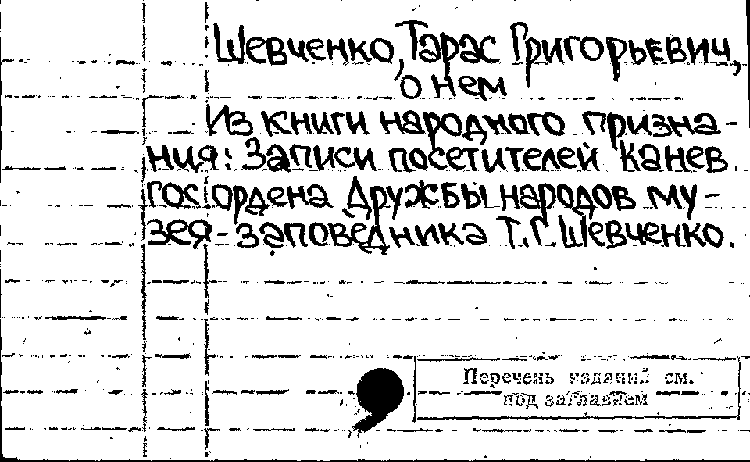 Шевченко, Тарас Григорьевич,
о нем
Из книги народного призна-
ния: Записи посетителей Канев.
гос. ордена Дружбы народов му-
зея-заповедника Т.Г. Шевченко.
Перечень изданий см.
под заглавием